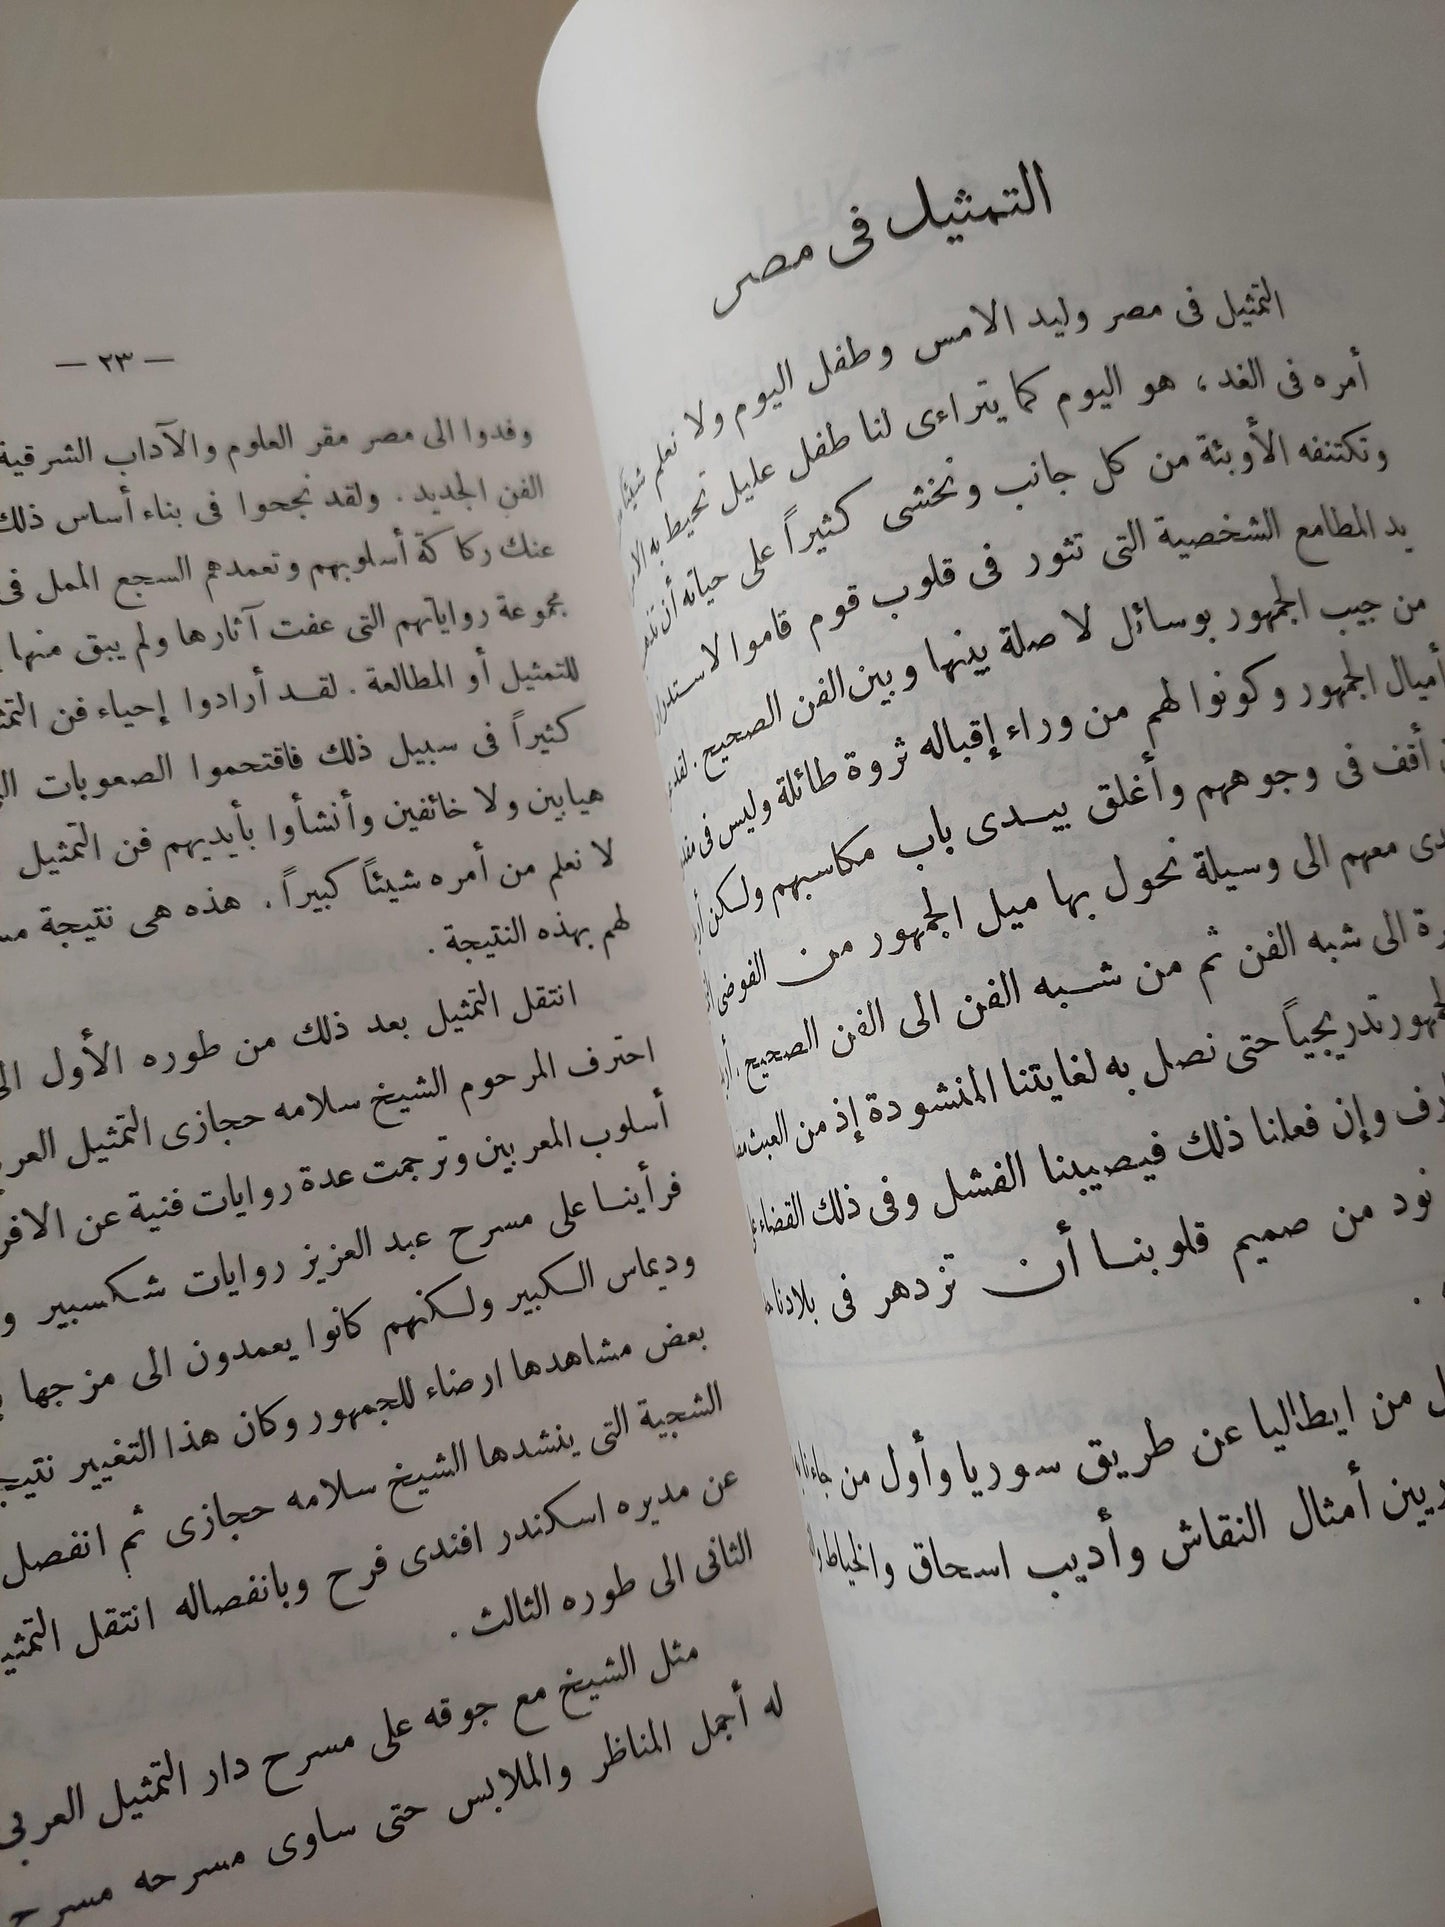 التمثيل فى مصر
التمثيل فى مصر وليد الامس وطفل اليوم ولا نعلم شيئاً
أمره فى الغد ، هو اليوم كما يتراءى لنا طفل عليل تحيط به
وتكتنفه الأوبئة من كل جانب ونخشى كثيراً على حياته أن
يد المطامع الشخصية التى تثور فى قلوب قوم قاموا
من جيب الجمهور بوسائل لا صلة بينها وبين الفن الصحيح .
أميال الجمهور وكونوا لهم من وراء إقباله ثروة طائلة وليس فى
أقف فى وجوههم وأغلق بيدى باب مكاسبهم ولكن
معهم الى وسيلة نحول بها ميل الجمهور من الفوضى
الى شبه الفن ثم من شبه الفن الى الفن الصحيح .
تدريجياً حتى نصل به لغايتنا المنشودة إذ من العبث
وإن فعلنا ذلك فيصيبنا الفشل وفى ذلك القضاء
نود من صميم قلوبنا أن تزدهر فى بلادنا
.
من ايطاليا عن طريق سوريا وأول من جاءنا
أمثال النقاش وأديب اسحاق والخياط
— ٢٣ —
وفدوا الى مصر مقر العلوم والآداب الشرقية
الفن الجديد . ولقد نجحوا فى بناء أساس ذلك
عنك ركاكة أسلوبهم وتعمدهم السجع الممل فى
مجموعة رواياتهم التى عفت آثارها ولم يبق منها
للتمثيل أو المطالعة . لقد أرادوا إحياء فن
كثيراً فى سبيل ذلك فاقتحموا الصعوبات
هيابين ولا خائفين وأنشأوا بأيديهم فن التمثيل
لا نعلم من أمره شيئاً كبيراً . هذه هى نتيجة
لهم بهذه النتيجة .
انتقل التمثيل بعد ذلك من طوره الأول
احترف المرحوم الشيخ سلامه حجازى التمثيل
أسلوب المعربين وترجمت عدة روايات فنية عن
فرأينا على مسرح عبد العزيز روايات شكسبير
وديماس الكبير ولكنهم كانوا يعمدون الى مزجها
بعض مشاهدها ارضاء للجمهور وكان هذا التغيير
الشجية التى ينشدها الشيخ سلامه حجازى ثم انفصل
عن مديره اسكندر افندى فرح وبانفصاله انتقل
الثانى الى طوره الثالث .
مثل الشيخ مع جوقه على مسرح دار التمثيل العربى
له أجمل المناظر والملابس حتى ساوى مسرحه مسرح